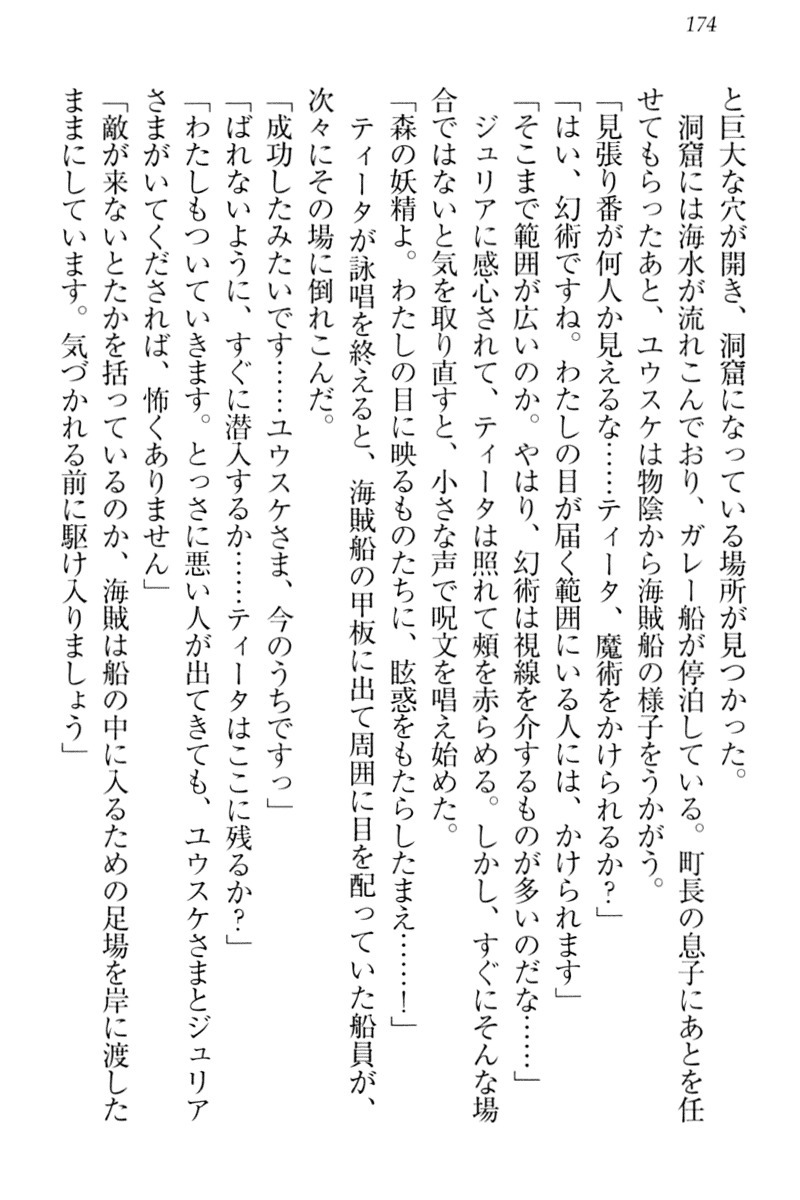 174
と巨大な穴が開き、洞窟になっている場所が見つかった。
　洞窟には海水が流れこんでおり、ガレー船が停泊している。町長の息子にあとを任
せてもらったあと、ユウスケは物陰から海賊船の様子をうかがう。
「見張り番が何人か見えるな……ティータ、魔術をかけられるか？」
「はい、幻術ですね。わたしの目が届く範囲にいる人には、かけられます」
「そこまで範囲が広いのか。やはり、幻術は視線を介するものが多いのだな……」
　ジュリアに感心されて、ティータは照れて頰を赤らめる。しかし、すぐにそんな場
合ではないと気を取り直すと、小さな声で呪文を唱え始めた。
「森の妖精よ。わたしの目に映るものたちに、眩惑をもたらしたまえ……！」
　ティータが詠唱を終えると、海賊船の甲板に出て周囲に目を配っていた船員が、
次々にその場に倒れこんだ。
「成功したみたいです……ユウスケさま、今のうちですっ」
「ばれないように、すぐに潜入するか……ティータはここに残るか？」
「わたしもついていきます。とっさに悪い人が出てきても、ユウスケさまとジュリア
さまがいてくだされば、怖くありません」
「敵が来ないとたかを括っているのか、海賊は船の中に入るための足場を岸に渡した
ままにしています。気づかれる前に駆け入りましょう」